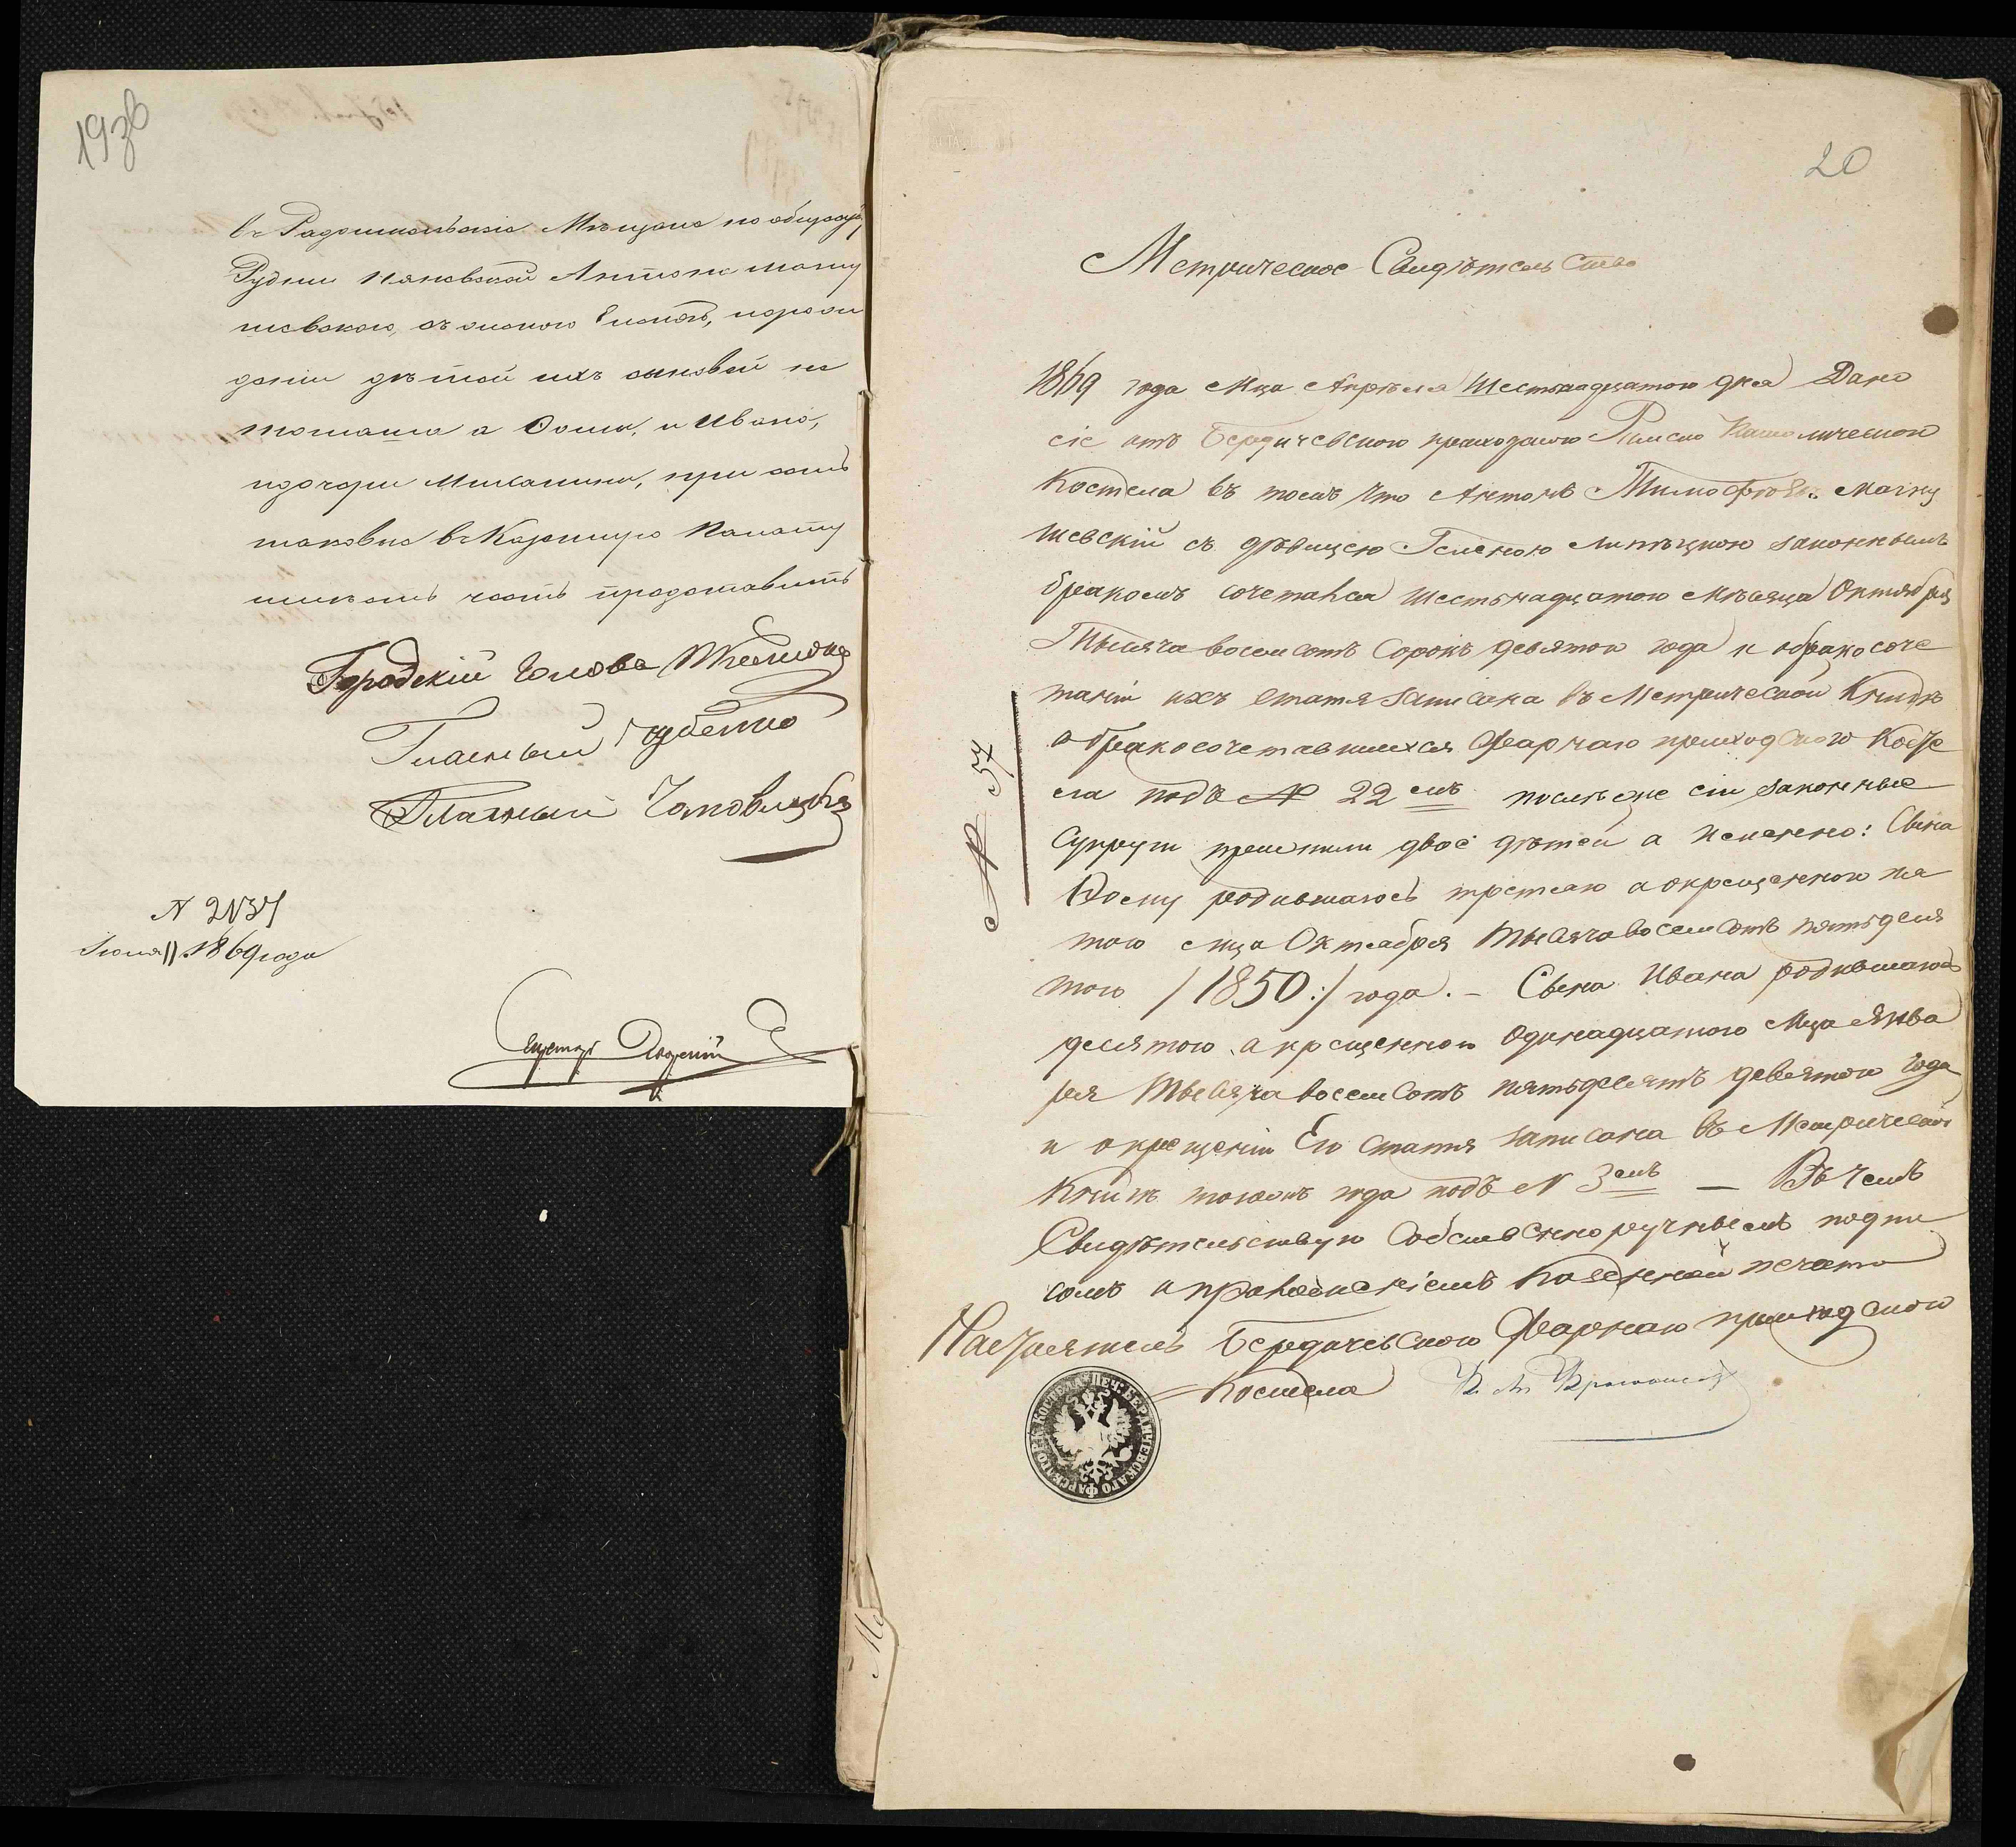 19об
въ Радомысльскія Мѣщане по обществу
Рудни Антона Мачу
шевскаго, съ оного Еленою, и о рож
деніи дѣтей ихъ сыновей не
Томаша а Фомы, и Ивана,
и дочери при семъ
таковые въ Казенную Палату
имѣетъ честь представить
Городскій Голова
Гласный
Гласный
N 2137
Іюня 11 1869 года
Секретарь
20
Метрическое Свидѣтельство
1869 года Мца Апрѣля Шестьнадцатого дня Дано
сіе отъ Бердичевского приходского Римско Католического
Костела въ томъ что Антонъ Тимофѣевъ Мачу
шевскій съ дѣвицею Геленою законнымъ
бракомъ сочетался Шестьнадцатого Мѣсяца Октября
Тысяча восемсотъ Сорокъ девятого года и о бракосоче
таніи ихъ статья записана въ Метрической Книгѣ
о бракосочетавшихся Фарнаго приходского Косте
ла подъ № 22 мъ послѣ же сіи законные
Супруги прижили двое дѣтей а именно: Сына
Фому родившагось третьяго а окрещенного пя
того мца Октября Тысяча восемсотъ пятьдеся
того /1850:/ года. - Сына Ивана родившагось
десятого а крещенного Одинадцатого Мца Янва
ря Тысяча восемсотъ пятьдесятъ девятого года
и о крещеніи Его статья записана въ Метрической
Книгѣ тогожъ года подъ N 3 мъ — Въ чемъ
Свидѣтельствую Собственноручнымъ подпи
сомъ и приложеніемъ Казенной печати
Настоятель Бердичевского Фарнаго приходского
Костела
№ 54
ПЕЧ: БЕРДИЧЕВСКАГО ФАРСКАГО Р. К. КОСТЕЛА